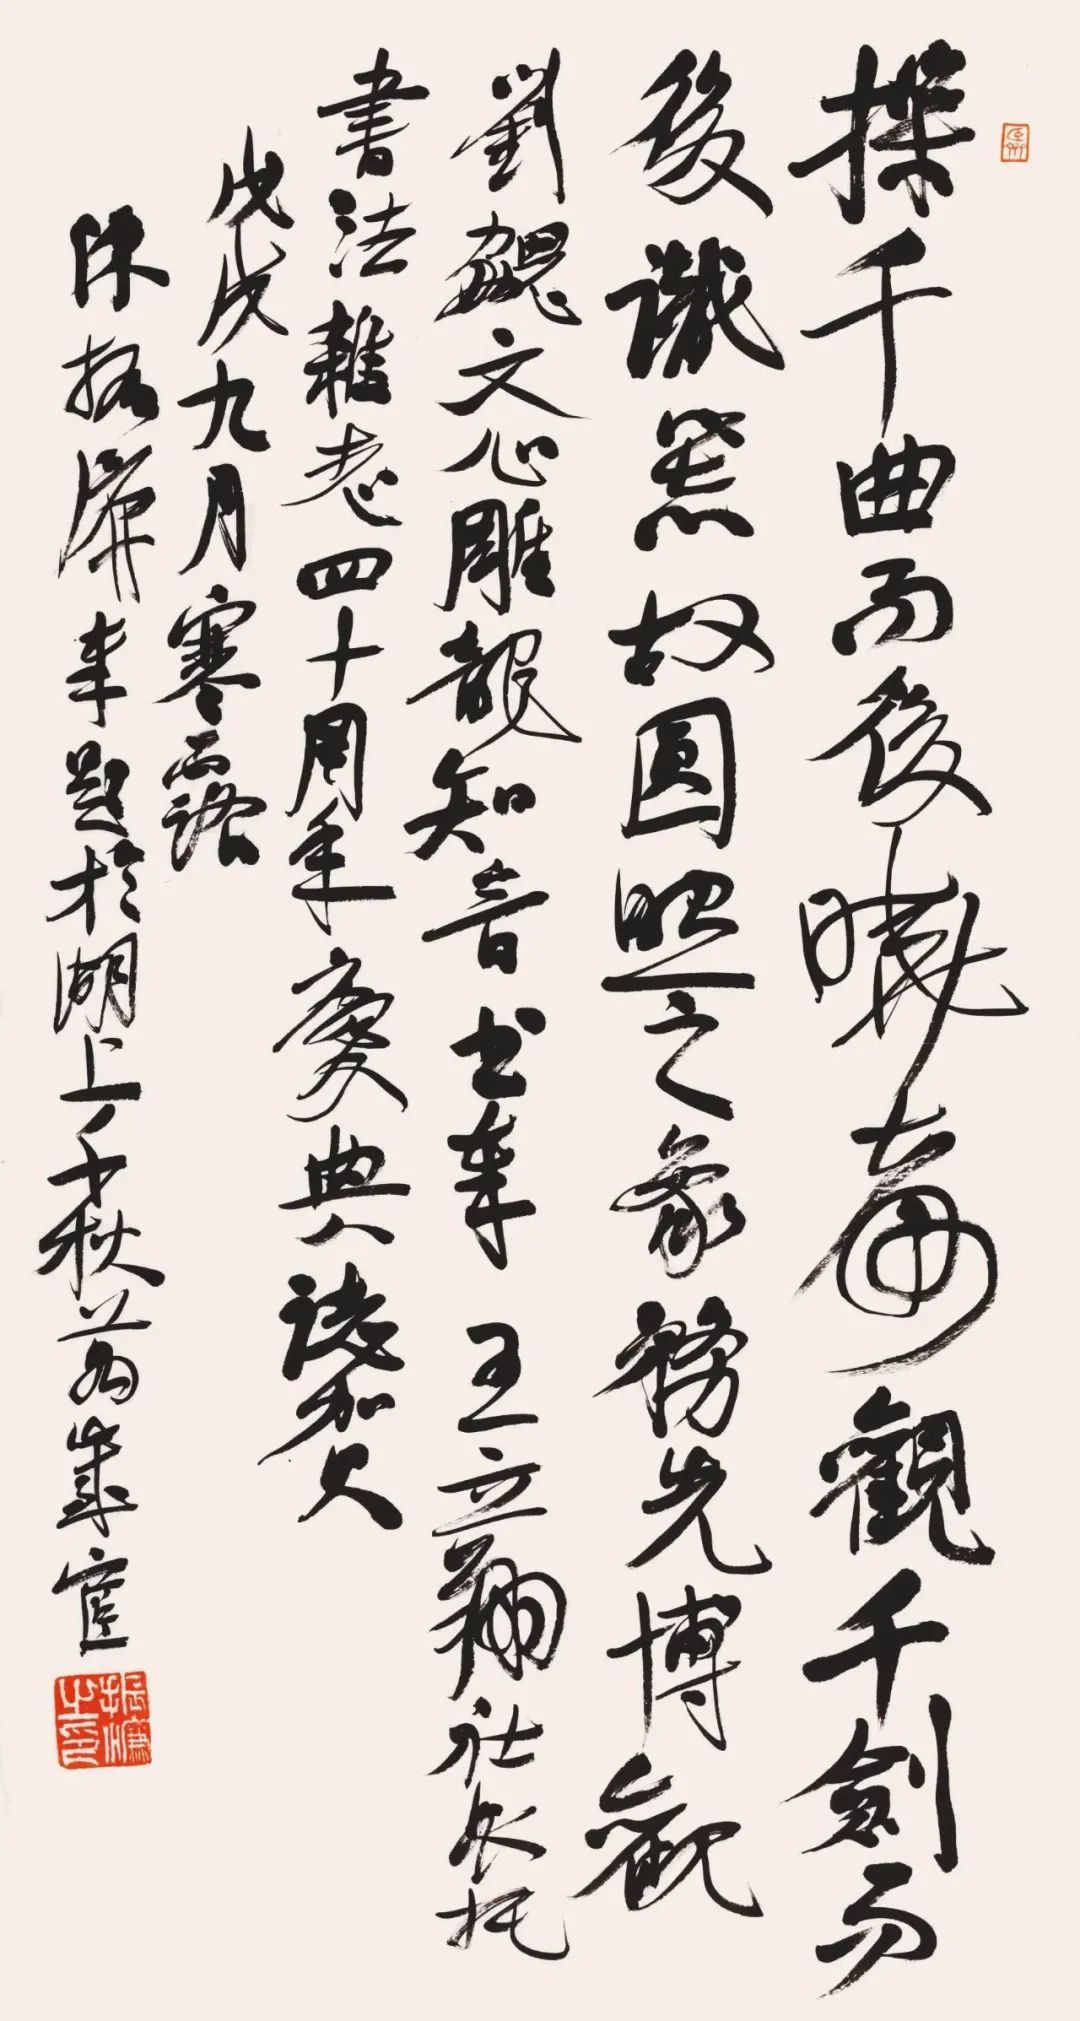 操千曲而後曉聲觀千劍而
後識器故圓照之象務先博觀
劉勰文心雕龍知音书奉 王立翔社长托
書法雜志四十周年慶典誌賀
戊戌九月寒露
陳振濂奉題於湖上千秋萬歲宧
振濂之印